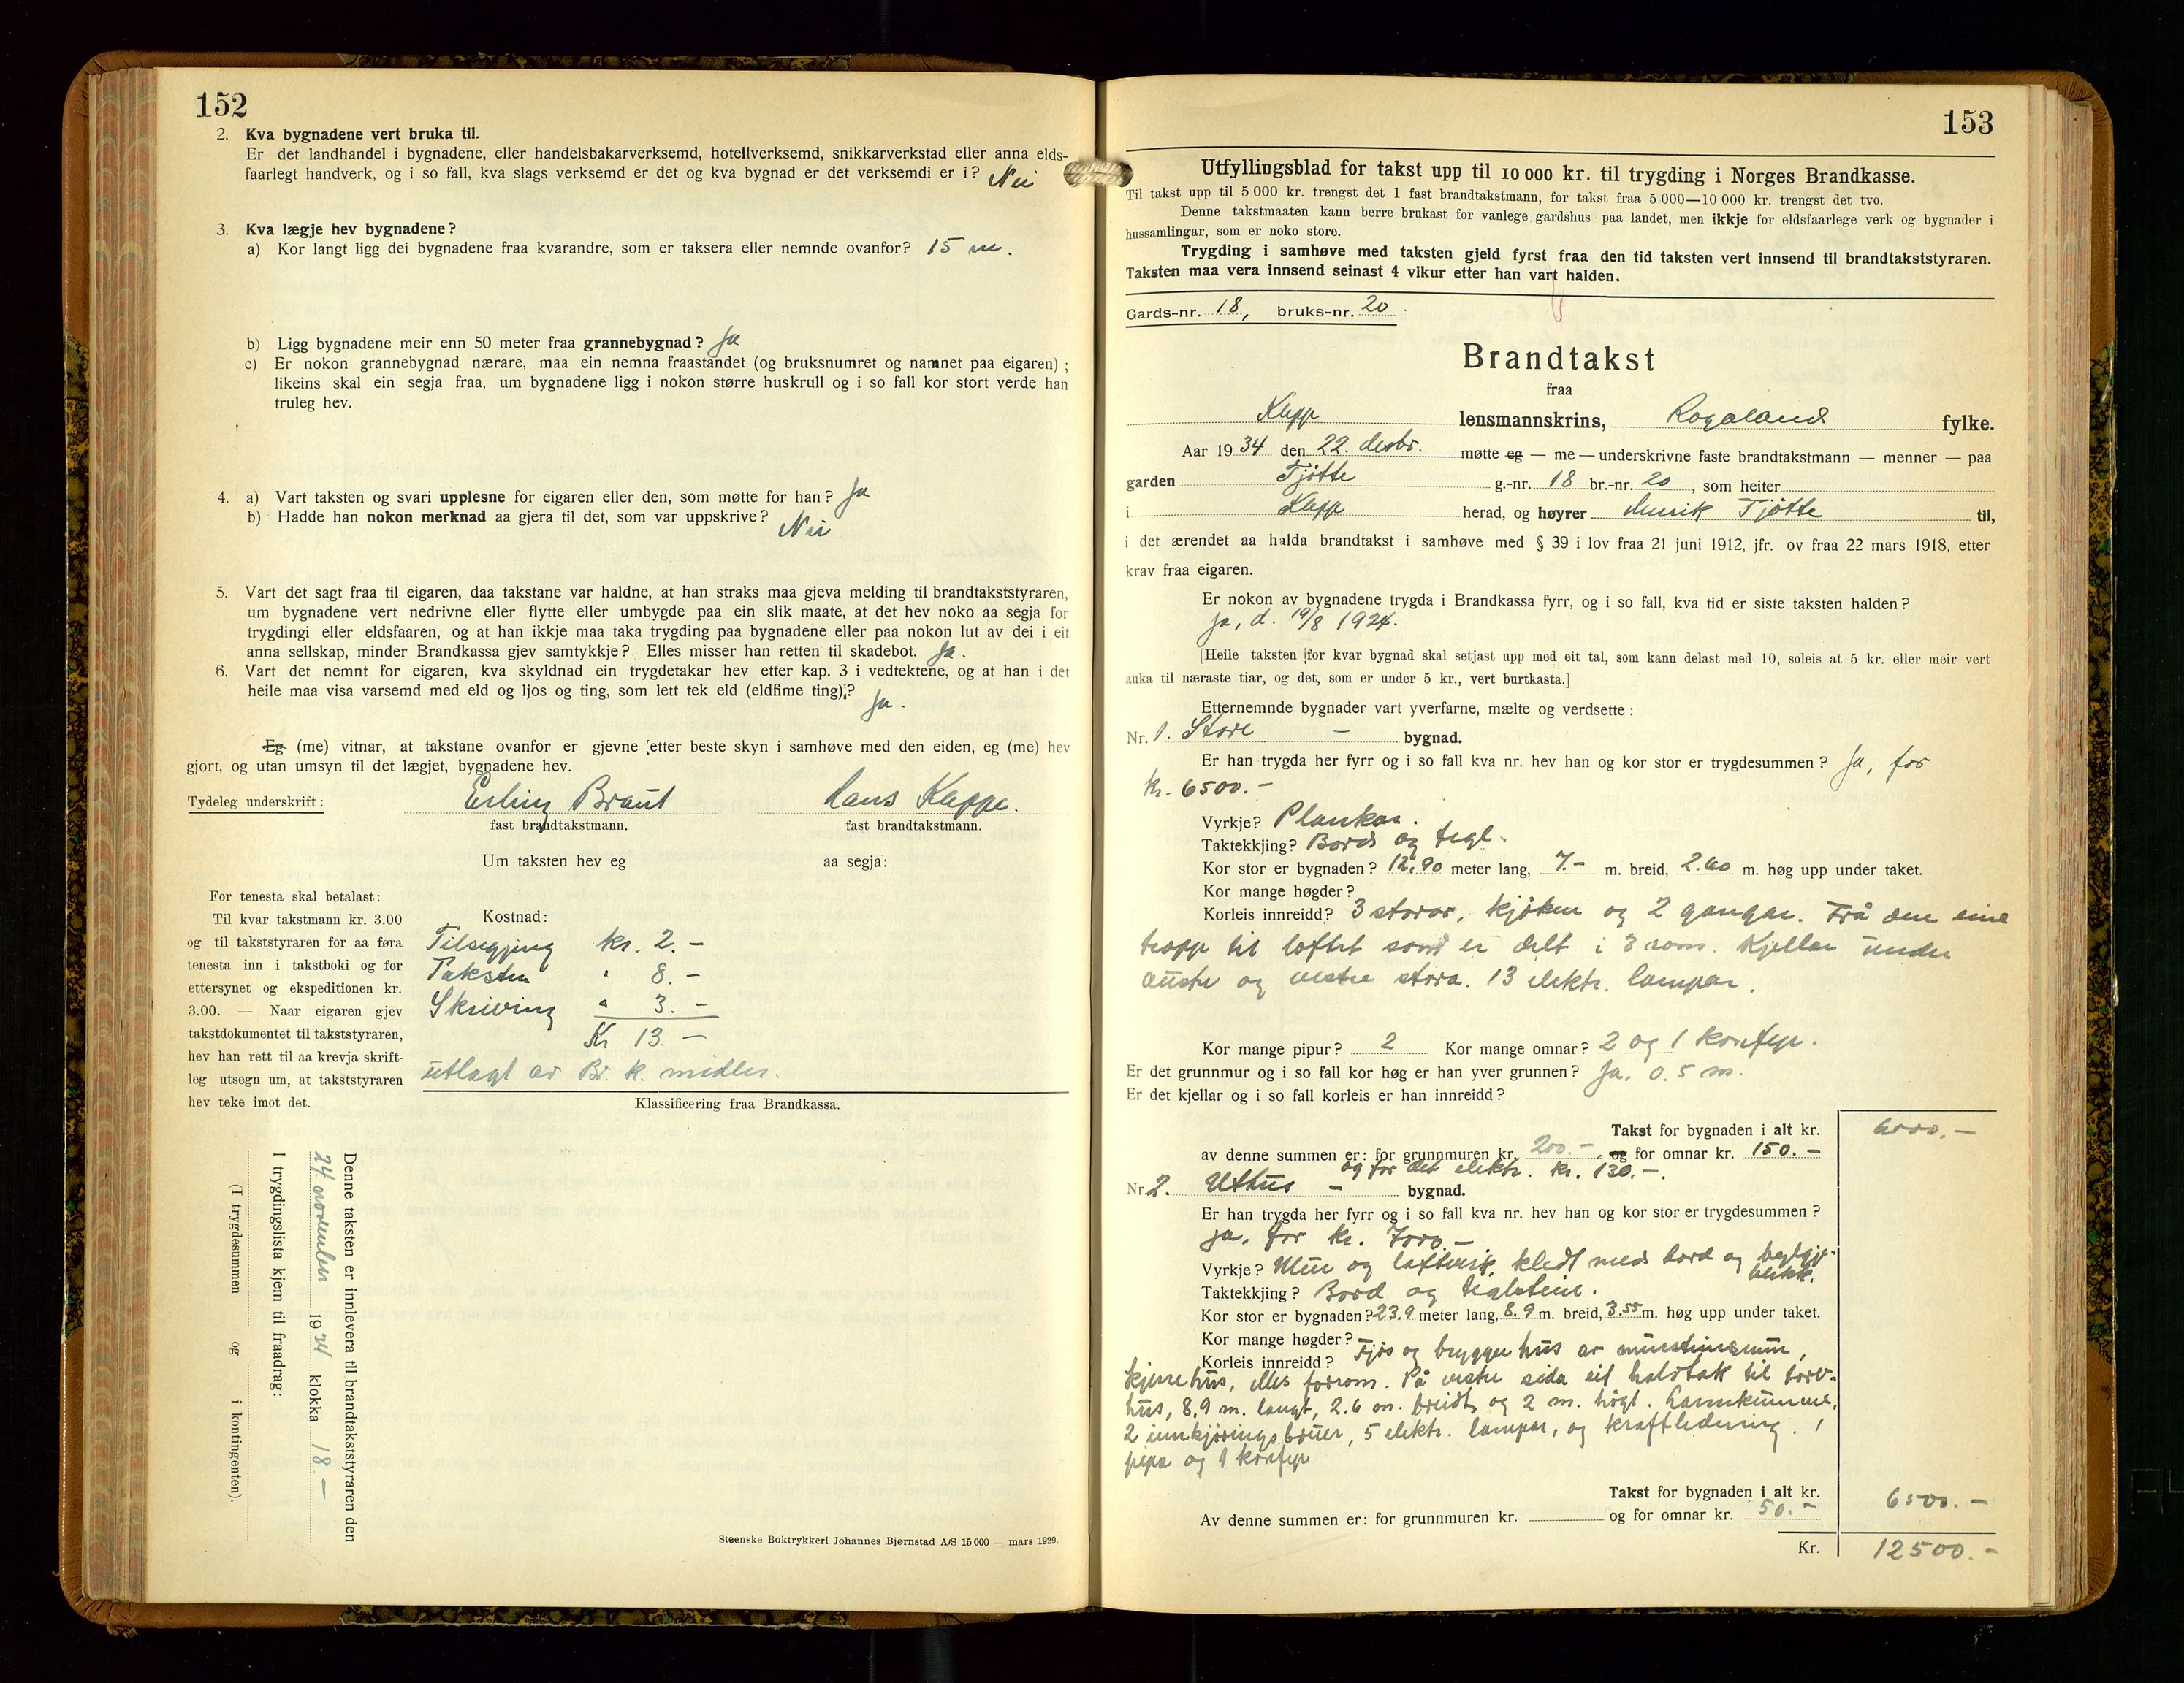 152
2. Kva bygnadene vert bruka til.
Er det landhandel i bygnadene, eller handelsbakarverksemd, hotellverksemd, snikkarverkstad eller anna elds-
faarlegt handverk, og i so fall, kva slags verksemd er det og kva bygnad er det verksemdi er i? Nei
3. Kva lægje hev bygnadene?
a) Kor langt ligg dei bygnadene fraa kvarandre, som er taksera eller nemnde ovanfor? 15 m.
b) Ligg bygnadene meir enn 50 meter fraa grannebygnad? Ja
c) Er nokon grannebygnad nærare, maa ein nemna fraastandet (og bruksnumret og namnet paa eigaren);
likeins skal ein segja fraa, um bygnadene ligg i nokon større huskrull og i so fall kor stort verde han
truleg hev.
4. a) Vart taksten og svari upplesne for eigaren eller den, som møtte for han? Ja
b) Hadde han nokon merknad aa gjera til det, som var uppskrive? Nei
5. Vart det sagt fraa til eigaren, daa takstane var haldne, at han straks maa gjeva melding til brandtakststyraren,
um bygnadene vert nedrivne eller flytte eller umbygde paa ein slik maate, at det hev noko aa segja for
trygdingi eller eldsfaaren, og at han ikkje maa taka trygding paa bygnadene eller paa nokon lut av dei i eit
anna sellskap, minder Brandkassa gjev samtykkje? Elles misser han retten til skadebot. Ja.
6. Vart det nemnt for eigaren, kva skyldnad ein trygdetakar hev etter kap. 3 i vedtektene, og at han i det
heile maa visa varsemd med eld og ljos og ting, som lett tek eld (eldfime ting)? Ja.
Eg (me) vitnar, at takstane ovanfor er gjevne etter beste skyn i samhøve med den eiden, eg (me) hev
gjort, og utan umsyn til det lægjet, bygnadene hev.
Tydeleg underskrift: Erling Braut Hans Kleppe.
fast brandtakstmann. fast brandtakstmann.
Um taksten hev eg aa segja:
For tenesta skal betalast:
Til kvar takstmann kr. 3.00
og til takststyraren for aa føra
tenesta inn i takstboki og for
ettersynet og ekspeditionen kr.
3.00. — Naar eigaren gjev
takstdokumentet til takststyraren,
hev han rett til aa krevja skrift-
leg utsegn um, at takststyraren
hev teke imot det.
Kostnad:
Tilsegjing kr. 2.-
Taksten " 8.-
Skriving " 3.-
Kr 13.-
utlagt av Br. k. midler.
Klassificering fraa Brandkassa.
Denne taksten er innlevera til brandtakststyraren den
24. november 1934 klokka 18.-
I trygdingslista kjem til fraadrag:
(I trygdesummen og i kontingenten).
Steenske Boktrykkeri Johannes Bjørnstad A/S 15 000 — mars 1929.
153
Utfyllingsblad for takst upp til 10 000 kr. til trygding i Norges Brandkasse.
Til takst upp til 5 000 kr. trengst det 1 fast brandtakstmann, for takst fraa 5 000—10 000 kr. trengst det tvo.
Denne takstmaaten kann berre brukast for vanlege gardshus paa landet, men ikkje for eldsfaarlege verk og bygnader i
hussamlingar, som er noko store.
Trygding i samhøve med taksten gjeld fyrst fraa den tid taksten vert innsend til brandtakststyraren.
Taksten maa vera innsend seinast 4 vikur etter han vart halden.
Gards-nr. 18, bruks-nr. 20.
Brandtakst
fraa
Klepp lensmannskrins, Rogaland fylke.
Aar 1934 den 22. desbr. møtte eg — me — underskrivne faste brandtakstmann — menner — paa
garden Tjøtte g.-nr. 18 br.-nr. 20, som heiter
i Klepp herad, og høyrer Henrik Tjøtte til,
i det ærendet aa halda brandtakst i samhøve med § 39 i lov fraa 21 juni 1912, jfr. ov fraa 22 mars 1918, etter
krav fraa eigaren.
Er nokon av bygnadene trygda i Brandkassa fyrr, og i so fall, kva tid er siste taksten halden?
Ja, d. 19/8 1924.
[Heile taksten for kvar bygnad skal setjast upp med eit tal, som kann delast med 10, soleis at 5 kr. eller meir vert
auka til næraste tiar, og det, som er under 5 kr., vert burtkasta.]
Etternemnde bygnader vart yverfarne, mælte og verdsette:
Nr. 1. Store - bygnad.
Er han trygda her fyrr og i so fall kva nr. hev han og kor stor er trygdesummen? Ja, for
kr. 6500.-
Vyrkje? Plankar.
Taktekkjing? Bord og tegl.
Kor stor er bygnaden? 12,90 meter lang, 7.- m. breid, 2.60 m. høg upp under taket.
Kor mange høgder?
Korleis innreidd? 3 stovor, kjøken og 2 gangar. Frå den eine
trapp til loftet som er delt i 3 rom. Kjellar under
austre og vestre stova. 13 elektr. lampar.
Kor mange pipur? 2 Kor mange omnar? 2 og 1 komfyr.
Er det grunnmur og i so fall kor høg er han yver grunnen? Ja, 0.5 m.
Er det kjellar og i so fall korleis er han innreidd?
Takst for bygnaden i alt kr. 6000.-
av denne summen er: for grunnmuren kr. 200.-, og for omnar kr. 150.-
og for det elektr. kr. 130.-.
Nr. 2. Uthus - bygnad.
Er han trygda her fyrr og i so fall kva nr. hev han og kor stor er trygdesummen?
Ja, for kr. 7000.-
Vyrkje? Mur og laftverk, kledt med bord og
blikk.
Taktekkjing? Bord og teglsteine.
Kor stor er bygnaden? 23.9 meter lang, 8.9 m. breid, 3.55 m. høg upp under taket.
Kor mange høgder?
Korleis innreidd? Fjøs og bryggerhus av mursteinsmur,
kjerrehus, elles forrom. På vestre sida eit halvtak til torv-
hus, 8,9 m. langt, 2.6 m. breidt og 2 m. høgt. Landkummer,
2 innkjøringsbruer, 5 elektr. lampar, og kraftledning. 1
pipa og 1 komfyr
Takst for bygnaden i alt kr. 6500.-
Av denne summen er: for grunnmuren kr. og for omnar kr. 50.-
Kr. 12500.-